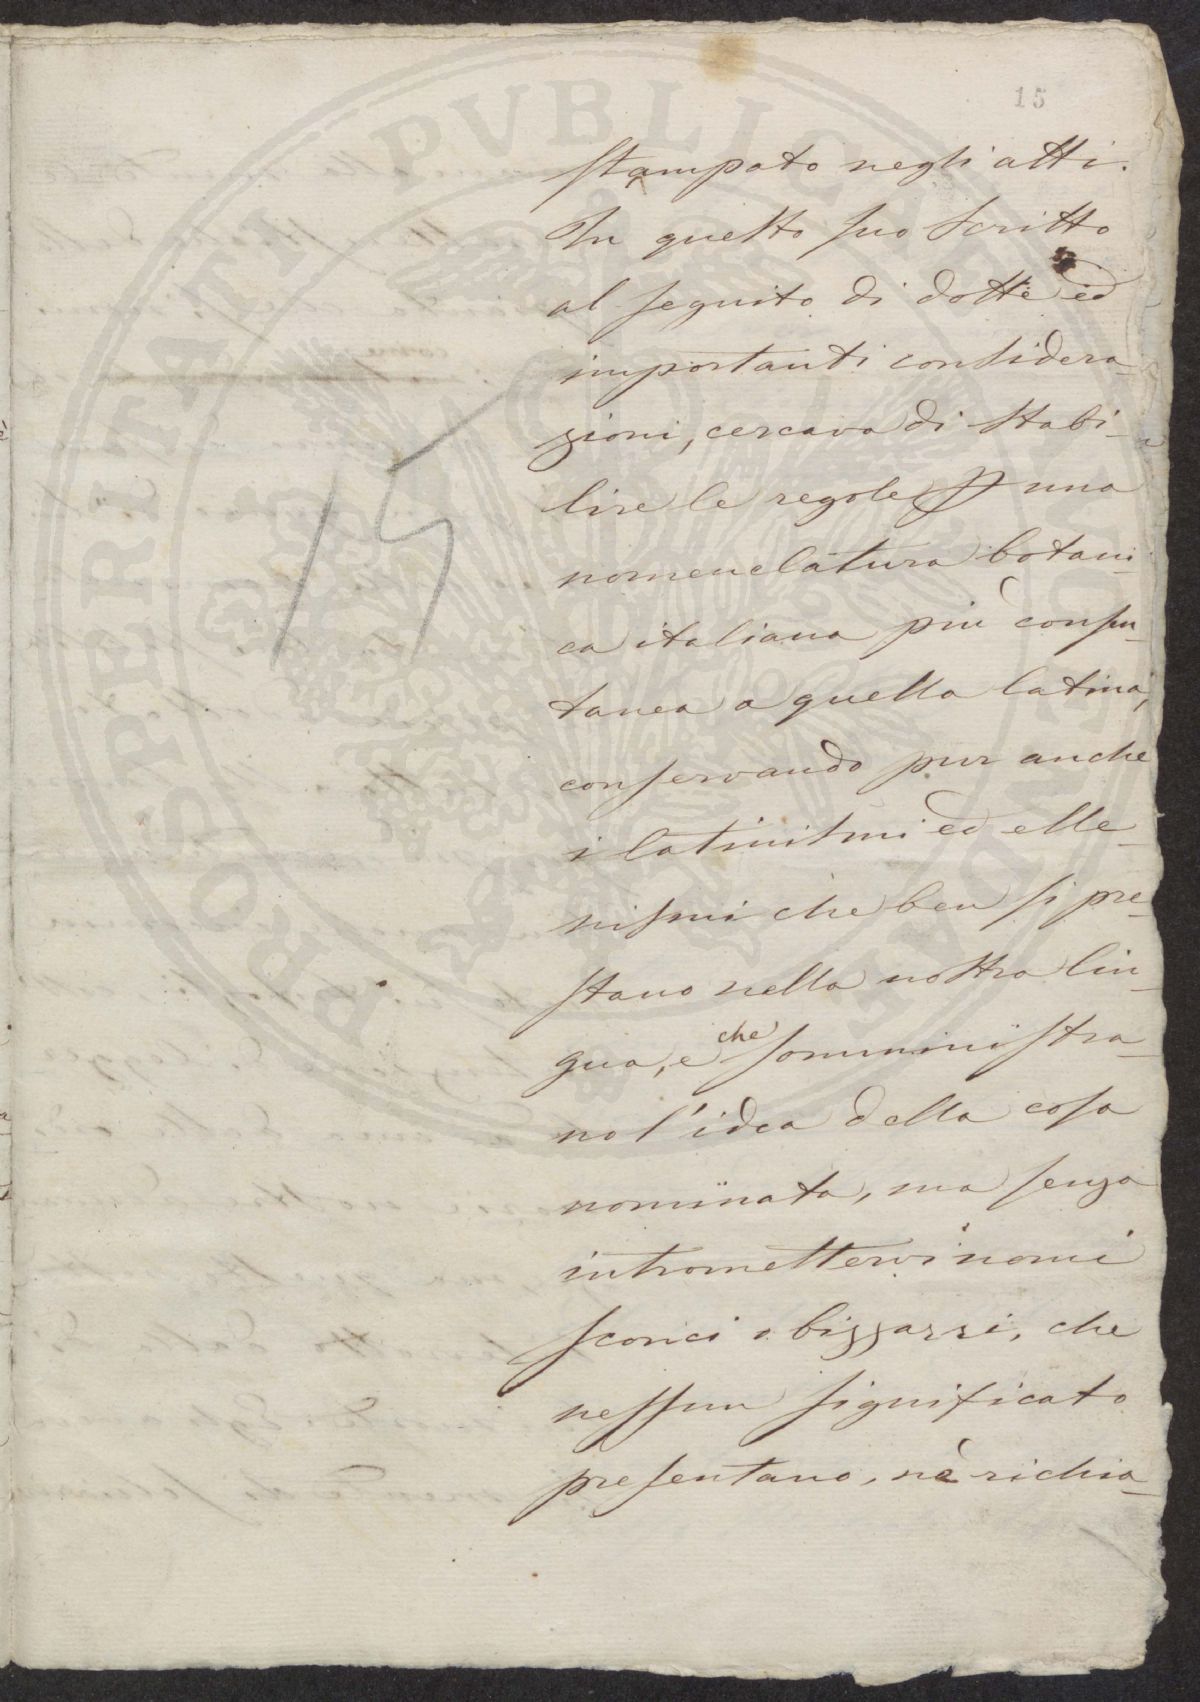 15
stampato negli atti.
In questo suo scritto
al seguito di dotte ed
importanti considera-
zioni, cercava di stabi-
lire le regole p una
nomenclatura botani-
ca italiana più consen-
tanea a quella latina,
conservando pur anche
i latinismi ed elle-
nismi che ben si pre-
stano nella nostra lin-
gua, e che somministra-
no l'idea della cosa
nominata, ma senza
intromettervi nomi
sconci e bizzarri, che
nessun significato
presentano, nè richia-
15
PROSPERITATI PVBLICAE AVGENDAE